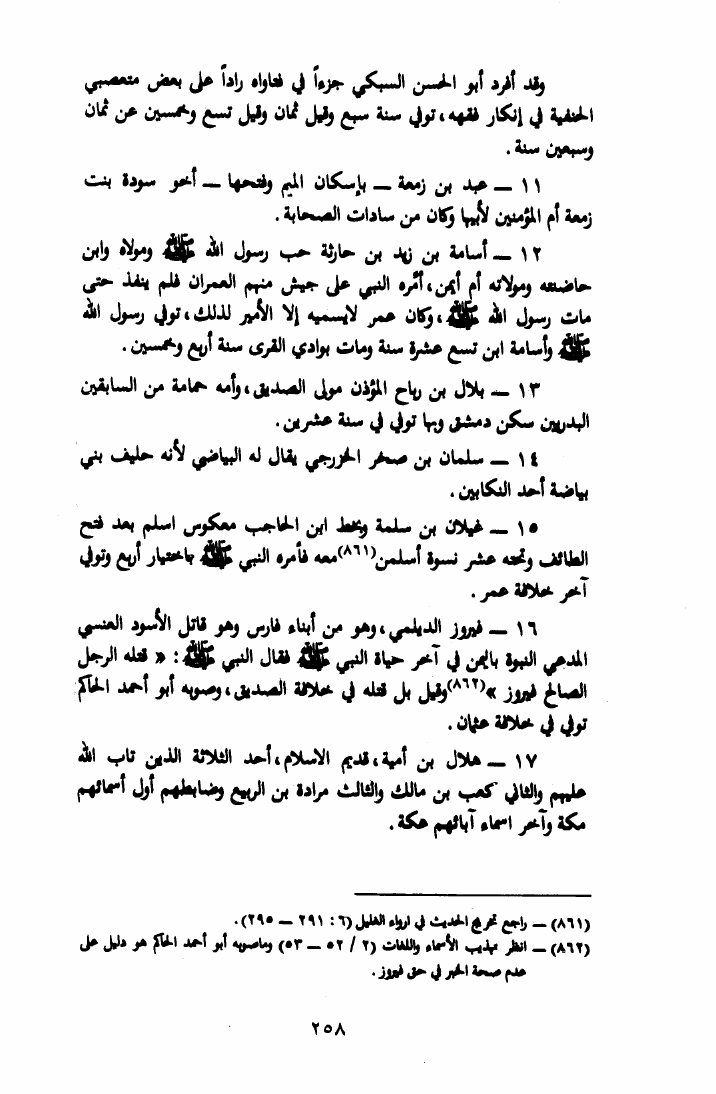 وقد أفرد أبو الحسن السبكي جزءاً في فتاواه راداً على بعض متعصبي
الحنفية في إنكار فقهه، توفي سنة سبع وقيل ثمان وقيل تسع وخمسين عن ثمان
وسبعين سنة.
١١ — عبد بن زمعة — بإسكان الميم وفتحها — أخو سودة بنت
زمعة أم المؤمنين لأبيها وكان من سادات الصحابة.
١٢ — أسامة بن زيد بن حارثة حب رسول الله ﷺ ومولاه وابن
حاضنته ومولاته أم أيمن، أمَّره النبي على جيش منهم العمران فلم ينفذ حتى
مات رسول الله ﷺ، وكان عمر لايسميه إلا الأمير لذلك، توفي رسول الله
ﷺ وأسامة ابن تسع عشرة سنة ومات بوادي القرى سنة أربع وخمسين.
١٣ — بلال بن رباح المؤذن مولى الصديق، وأمه حمامة من السابقين
البدريين سكن دمشق وبها توفي في سنة عشرين.
١٤ — سلمان بن صخر الخزرجي يقال له البياضي لأنه حليف بني
بياضة أحد النكابين.
١٥ — غيلان بن سلمة وبخط ابن الحاجب معكوس اسلم بعد فتح
الطائف وتحته عشر نسوة أسلمن(٨٦١)معه فأمره النبي ﷺ باختيار أربع وتوفي
آخر خلافة عمر.
١٦ — فيروز الديلمي، وهو من أبناء فارس وهو قاتل الأسود العنسي
المدعي النبوة باليمن في آخر حياة النبي ﷺ فقال النبي ﷺ: « قتله الرجل
الصالح فيروز »(٨٦٢)وقيل بل قتله في خلافة الصديق، وصوبه أبو أحمد الحاكم
توفي في خلافة عثمان.
١٧ — هلال بن أمية، قديم الاسلام، أحد الثلاثة الذين تاب الله
عليهم والثاني كعب بن مالك والثالث مرادة بن الربيع وضابطهم أول أسمائهم
مكة وآخر اسماء آبائهم عكة.
(٨٦١) — راجع تخريج الحديث في ارواء الغليل (٦ : ٢٩١ — ٢٩٥).
(٨٦٢) — انظر تهذيب الأسماء واللغات (٢ / ٥٢ — ٥٣) وماصوبه أبو أحمد الحاكم هو دليل على
عدم صحة الخبر في حق فيروز.
٢٥٨